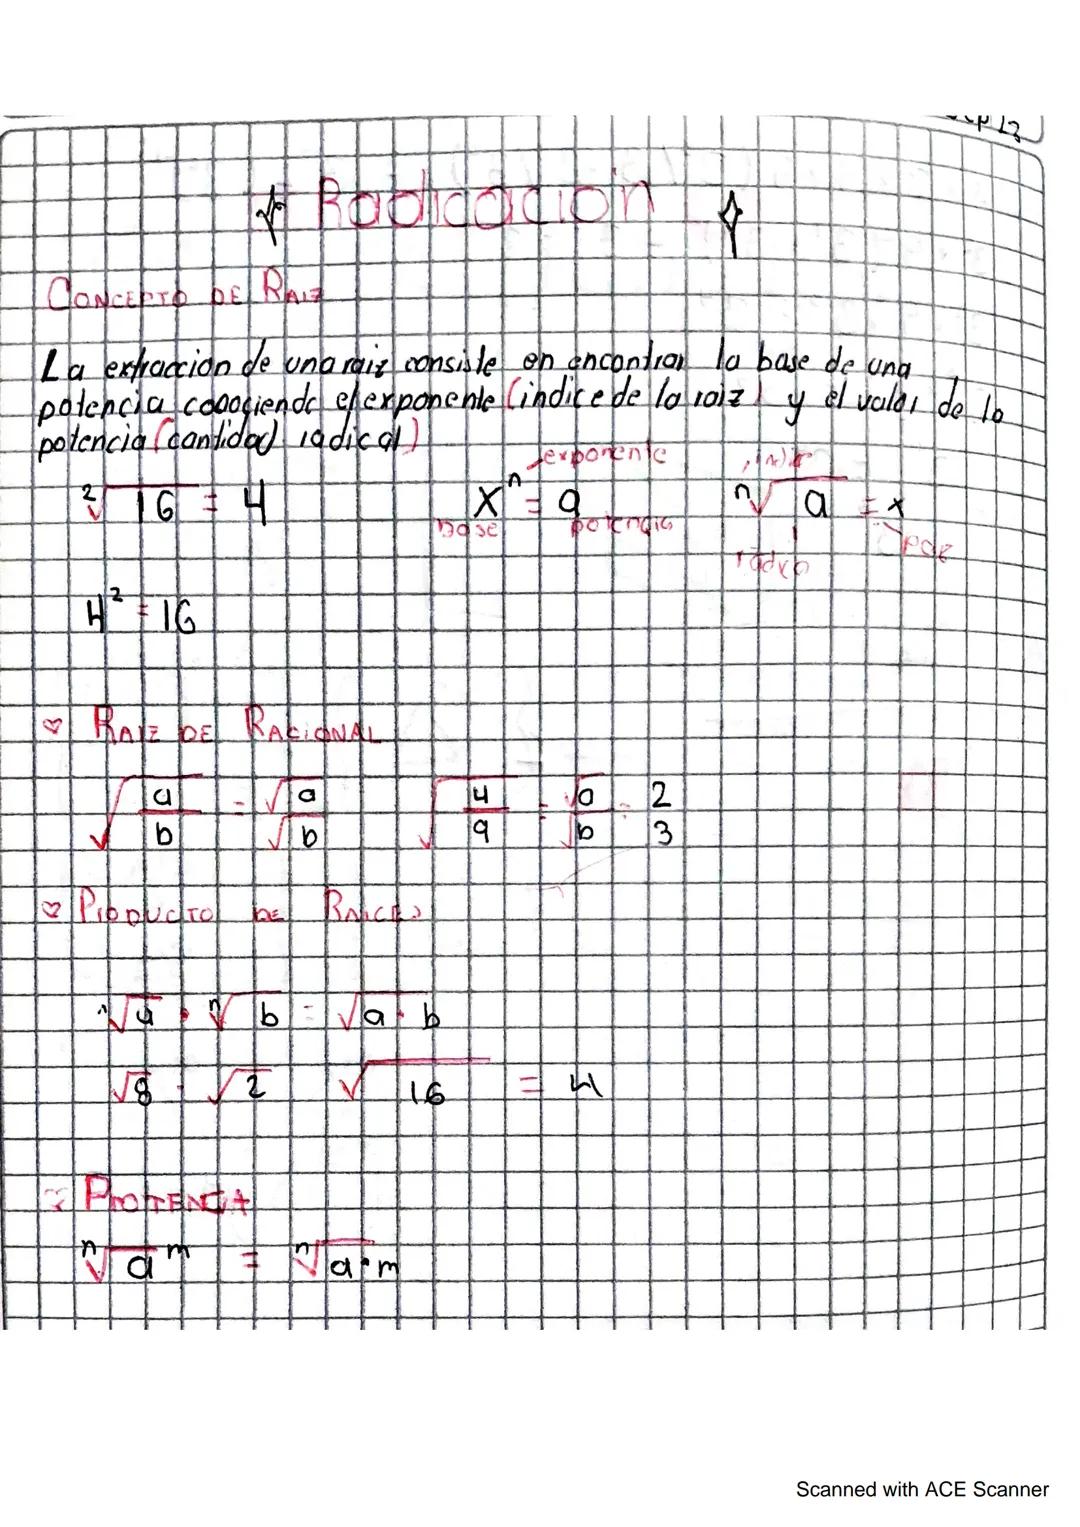 Sep 13
Radicación
CONCEPTO DE RAIZ
La extracción de una raiz consiste en encontrar la base de una
potencia conociendo el exponente (indice de la raiz) y el valor de la
potencia (cantidad radical)
exponente
²√16 = 4 xⁿ = a ⁿ√a = x
base potencia
4² = 16
♡ RAIZ DE RACIONAL
√(a/b) = √a/√b √(4/9) = √a/√b = 2/3
♡ PRODUCTO DE RAICES
ⁿ√a · ⁿ√b = √a·b
√8 · √2 √16 = 4
♡ POTENCIA
ⁿ√a ᵐ = ⁿ√a·m
Scanned with ACE Scanner